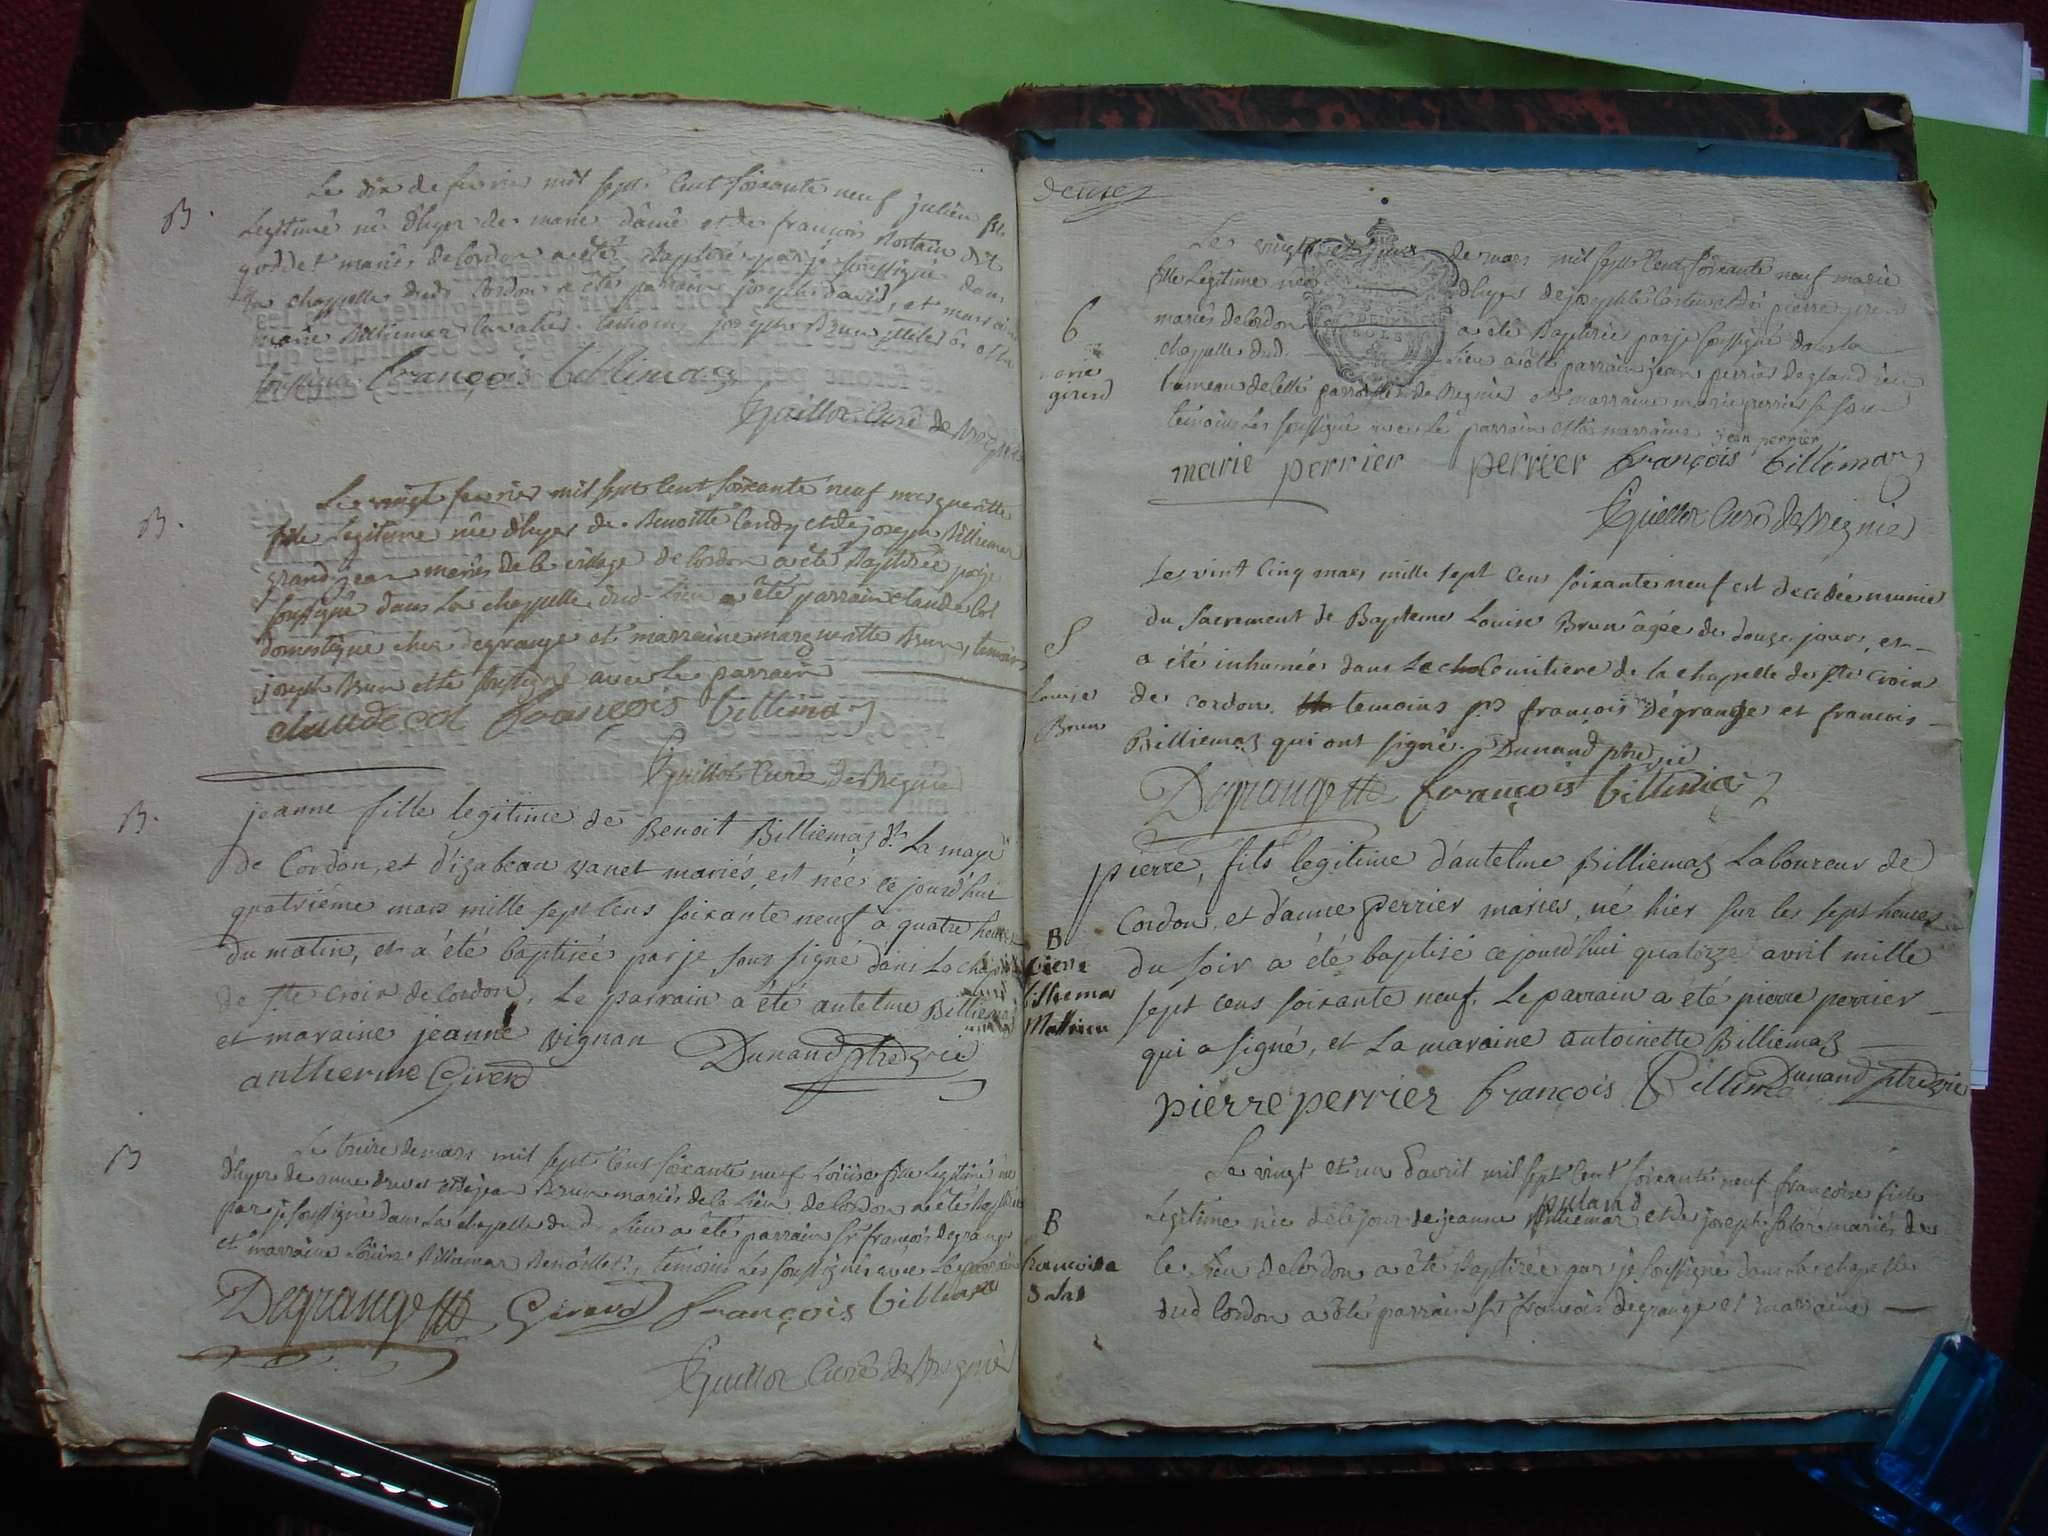 B.
Le dix de fevrier mil sept Cent soixante neuf julien fils
Legitime né d'hyer de marie et de françois dit
godet mariés de Cordon a été Baptisé par je soussigné dans
la chappelle dud. Cordon a été parrain joseph david, et marraine
marie Billiemaz Cavalier, temoins joseph Brun
françois billimaz
Guillot Curé de Bregnier
B.
Le vingt fevrier mil sept Cent soixante neuf marguerite
fille Legitime née d'hyer de Benoitte Cendy et de joseph Billiemaz
grand jean mariés de le village de Cordon a été Baptisée par je
soussigné dans la chappelle dud. Lieu a été parrain claude Col
domestique chez degrange et marraine marguerite Brun, temoins
joseph Brun et le soussigné avec Le parrain
claude col françois billimaz
Guillot Curé de Bregnier
B.
jeanne fille legitime de Benoit Billiemaz dt. La maye
de Cordon, et d'izabeau vanet mariés, est née ce jourd'hui
quatriéme mars mille sept Cens soixante neuf a quatre heures
du matin, et a été baptisée par je sous signé dans La chapelle
de ste croix de Cordon. Le parrain a été antelme Billiemaz
et maraine jeanne vignan
antherme Girerd Dunand ptre vic
B
Le treize de mars mil sept Cent soixante neuf Loüise fille Legitime née
d'hyer de anne druet et de jean Brun mariés de le Lieu de Cordon a été baptisée
par je soussigné dans La chapelle du d. Lieu a été parrain sr. françois degrange
et marraine Loüise Billiemaz Benoîte, temoins Les soussignés avec Le parrain
Degrange Girerd françois billimaz
Guillot Curé de Bregnier
deuxe
6
marie
gererd
Le vingt et un de mars mil sept Cent soixante neuf marie
fille Legitime née d'hyer de josephte et de pierre girerd
mariés de Cordon a été Baptisée par je soussigné dans La
chappelle dud. Lieu a été parrain jean perrier de glandieu
hameau de cette parroisse de Bregnier et marraine marie perrier sa sœur
temoins Les soussignés avec Le parrain et La marraine jean perrier
marie perrier perrier françois billimaz
Guillot Curé de Bregnier
S
Louise
Brun
Le vint Cinq mars mille sept Cens soixante neuf est decedée munie
du Sacrement de Baptême Louise Brun âgée de douze jours, et
a été inhumée dans Le cimitiere de la chapelle de ste Croix
de cordon. temoins sr. françois Dégrange et francois
Billiemaz qui ont signé. Dunand ptre vic
Degrange françois billimaz
B
Piere
billiemas
Mathieu
pierre, fils legitime d'antelme Billiemaz Laboureur de
Cordon, et d'anne perrier mariés, né hier sur les sept heures
du soir a été baptisé ce jourd'hui quatorze avril mille
sept cens soixante neuf. Le parrain a été pierre perrier
qui a signé, et La maraine antoinette Billiemaz
pierre perrier françois Billima Dunand ptre vic
B
francoise
Salas
Le vingt et un d'avril mil sept Cent soixante neuf françoise fille
putand
Legitime née de le jour de jeanne Billiemaz et de joseph salar mariés de
le Lieu de Cordon a été Baptisée par je soussigné dans La chapelle
dud Cordon a été parrain sr. françois degrange et marraine